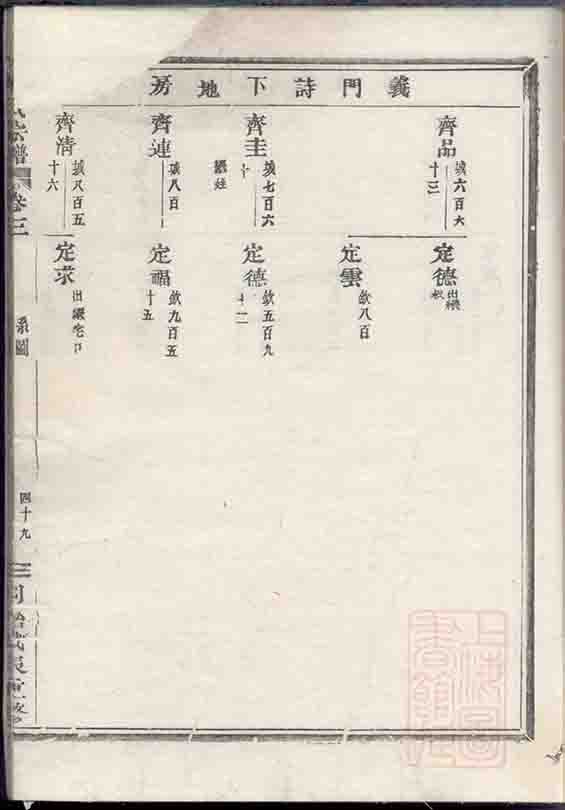 義門詩下地房
齊品
城六百六
十三
定德
出繼
叔
定雲
欽八百
齊圭
城七百六
繼姪
定德
欽五百九
十二
齊連
城八百
定福
欽九百五
十五
齊淸
城八百五
十六
定求
出繼宅
宗譜
卷三
系圖
四十九
上海圖書館藏